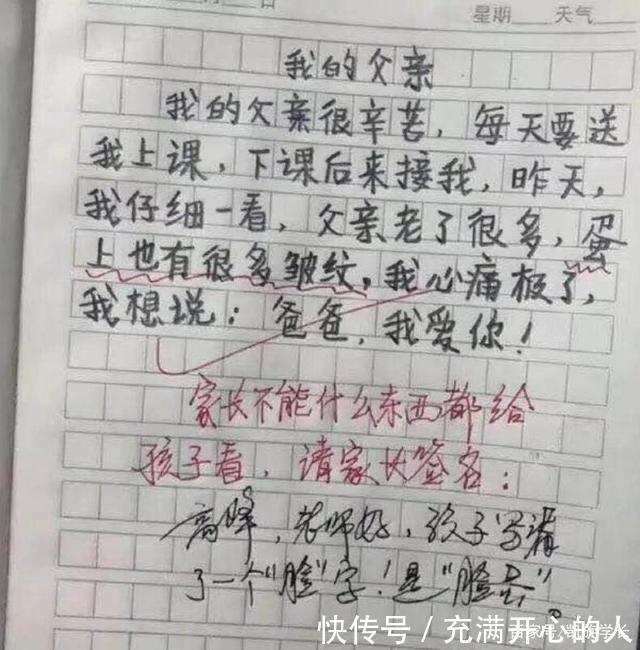 日 星期 天气
我的父亲
我的父亲很辛苦，每天要送
我上课，下课后来接我，昨天，
我仔细一看，父亲老了很多，蛋
上也有很多皱纹，我心痛极了，
我想说：爸爸，我爱你！
家长不能什么东西都给
孩子看，请家长签名：
高峰，老师好，孩子写漏
了一个“脸”字！是“脸蛋”。
快传号 / 充满开心的人